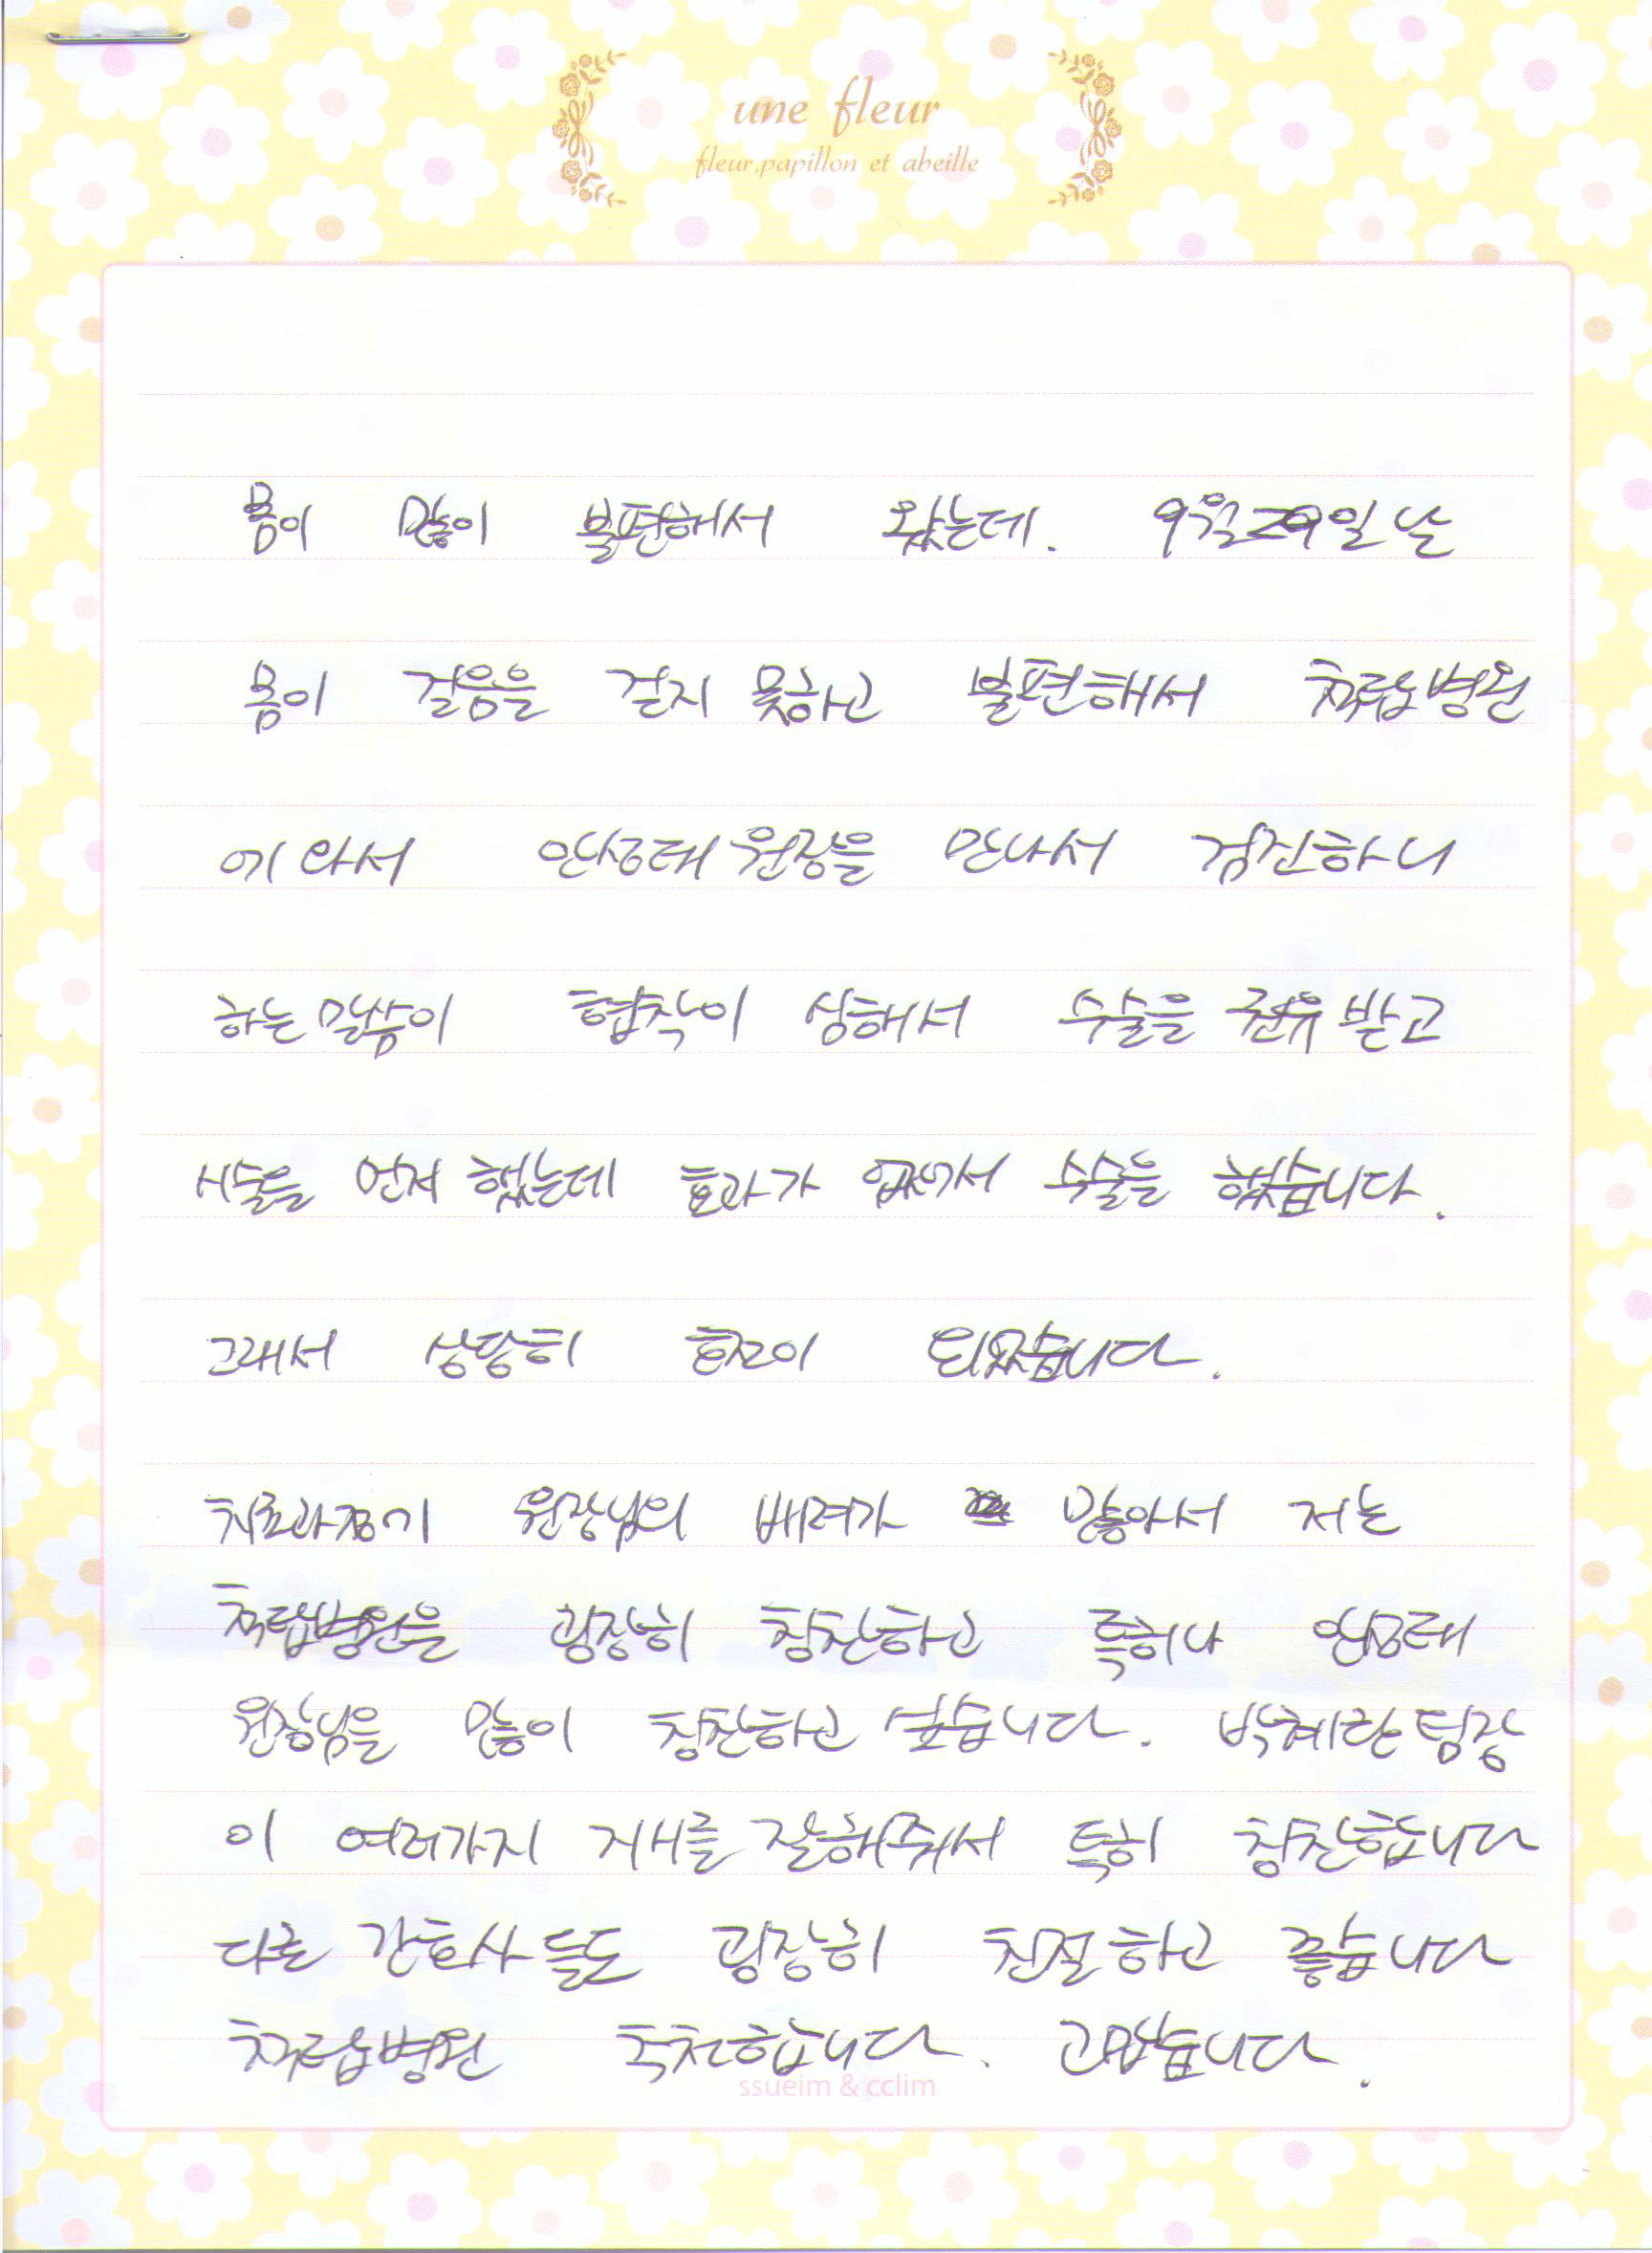 une fleur
fleur, papillon et abeille
몸이 많이 불편해서 왔는데. 9월29일날
몸이 걸음을 걷지 못하고 불편해서 척립병원
에 와서 안성태 원장을 만나서 검진하니
하는 말씀이 협착이 심해서 수술을 권유 받고
시술을 먼저 했는데 효과가 없어서 수술을 했습니다.
그래서 상당히 호전이 되었습니다.
치료과정에 원장님의 배려가 많아서 저는
척립병원을 굉장히 칭찬하고 특히나 안성태
원장님을 많이 칭찬하고 싶습니다. 박혜란 팀장
이 여러가지 거시를 잘해줘서 특히 칭찬합니다
다른 간호사들도 굉장히 친절하고 좋습니다
척립병원 추천합니다. 고맙습니다.
ssueim & cclim